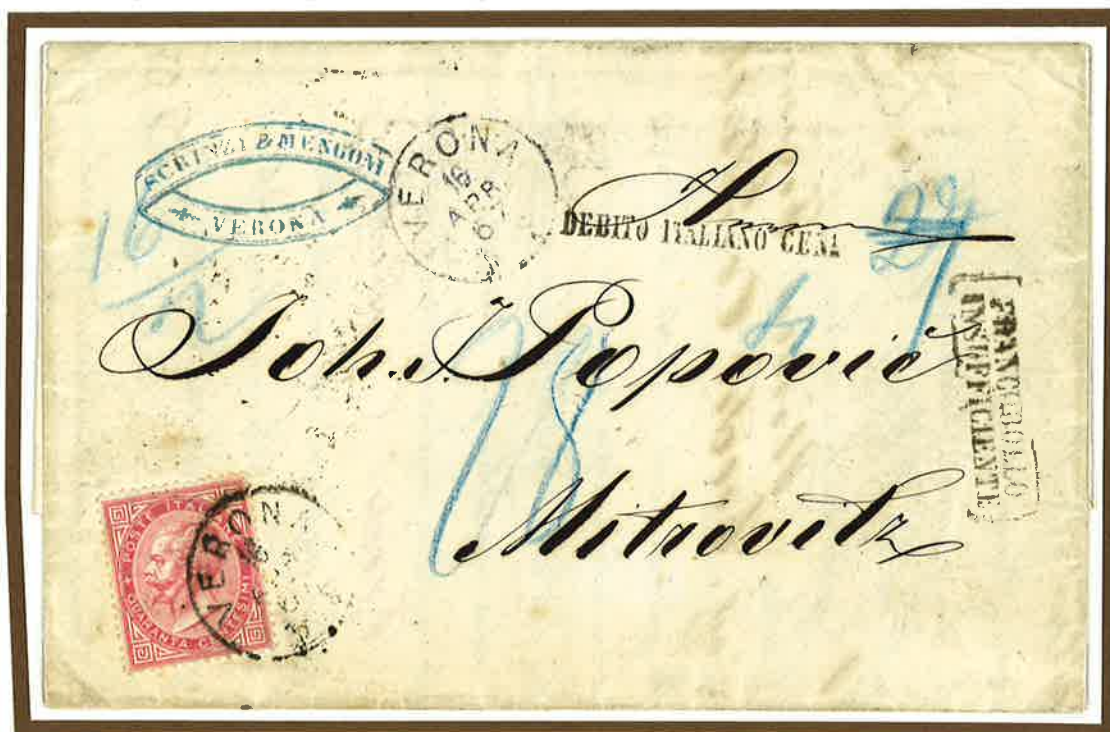 SCRINZI & MENGONI
VERONA
VERONA
16
APR
DEBITO ITALIANO CENT
16
Joh. J. Popović
FRANCOBOLLO
INSUFFICIENTE
18
Mitrovitz
POSTE ITALIANE
QUARANTA CENTESIMI
VERONA